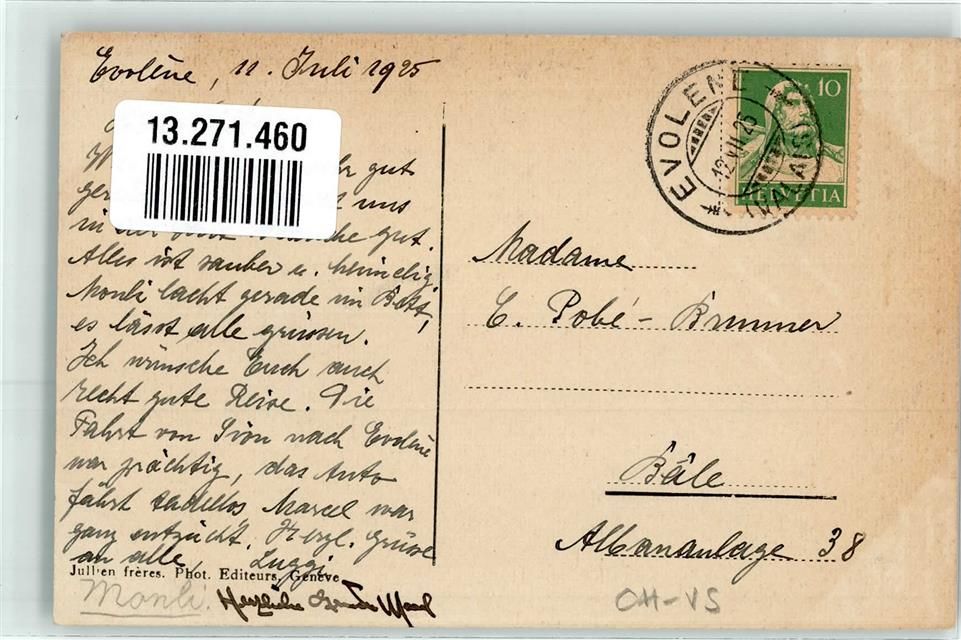 Evolène, 11. Juli 1925
13.271.460
gut
uns
in der gut.
Alles ist sauber u. heimelig
Monli lacht gerade im Bett,
es lässt alle grüssen.
Ich wünsche Euch auch
recht gute Reise. Die
Fahrt von Sion nach Evolène
war prächtig, das Auto
fährt tadellos Marcel war
ganz entzückt. Herzl. Grüsse
an alle, Luggi
Jullien frères. Phot. Editeurs, Genève
Monli.
Herzliche Grüsse Marcel
EVOLENE (VALAIS)
12.VII.25
10
HELVETIA
Madame
C. Pobé - Brunner
Bâle
Albananlage 38
CH-VS